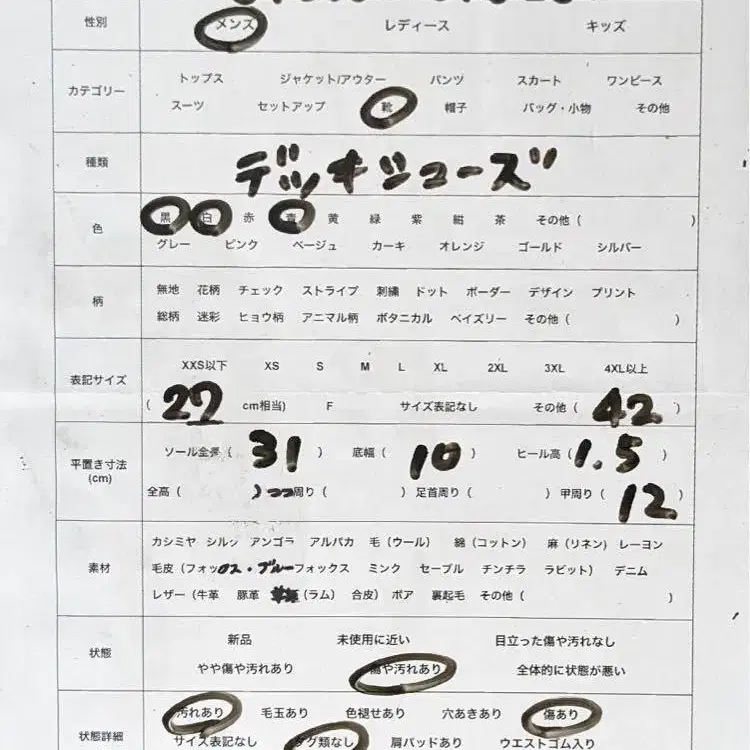 性別 メンズ レディース キッズ
カテゴリー
トップス ジャケット/アウター パンツ スカート ワンピース
スーツ セットアップ 靴 帽子 バッグ・小物 その他
種類 デッキシューズ
色
黒 白 赤 青 黄 緑 紫 紺 茶 その他 ( )
グレー ピンク ベージュ カーキ オレンジ ゴールド シルバー
柄
無地 花柄 チェック ストライプ 刺繍 ドット ボーダー デザイン プリント
総柄 迷彩 ヒョウ柄 アニマル柄 ボタニカル ペイズリー その他 ( )
表記サイズ
XXS以下 XS S M L XL 2XL 3XL 4XL以上
( 27 cm相当) F サイズ表記なし その他 ( 42 )
平置き寸法
(cm)
ソール全長 ( 31 ) 底幅 ( 10 ) ヒール高 ( 1.5 )
全高 ( ) つつ周り ( ) 足首周り ( ) 甲周り ( 12 )
素材
カシミヤ シルク アンゴラ アルパカ 毛 (ウール) 綿 (コットン) 麻 (リネン) レーヨン
毛皮 (フォックス・ブルーフォックス ミンク セーブル チンチラ ラビット) デニム
レザー (牛革 豚革 (ラム) 合皮) ボア 裏起毛 その他 ( )
状態
新品 未使用に近い 目立った傷や汚れなし
やや傷や汚れあり 傷や汚れあり 全体的に状態が悪い
状態詳細
汚れあり 毛玉あり 色褪せあり 穴あきあり 傷あり
サイズ表記なし タグ類なし 肩パッドあり ウエストゴム入り